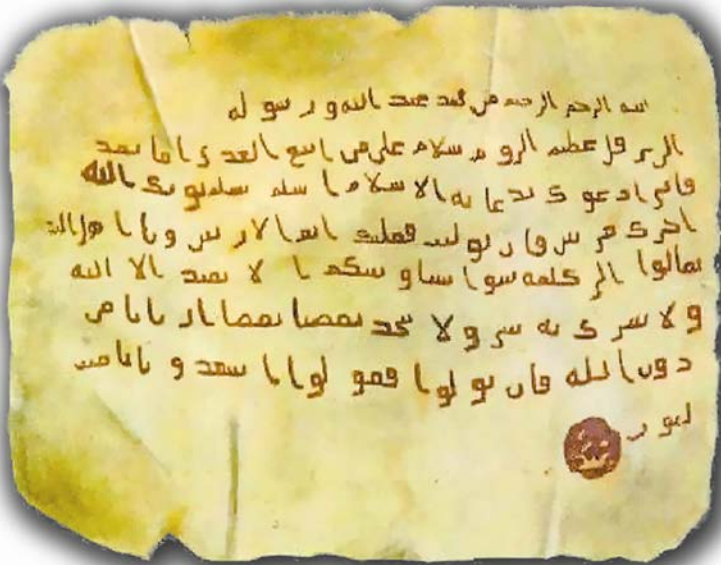 الرحمن الرحيم من محمد عبد الله و رسو له
الى هرقل عظيم الروم سلام على من اتبع الهدى اما بعد
فانى ادعوك بدعاية الاسلام اسلم تسلم يوتك الله
اجرك مرتين فان توليت فعليك اثم الاريسين ويا اهل
تعالوا الى كلمة سوا بيننا وبينكم الا نعبد الا الله
ولا نشرك به شيا ولا يتخذ بعضنا بعضا اربابا من
دون الله فان تولوا فقولوا اشهدوا بانا مسلـ
مون